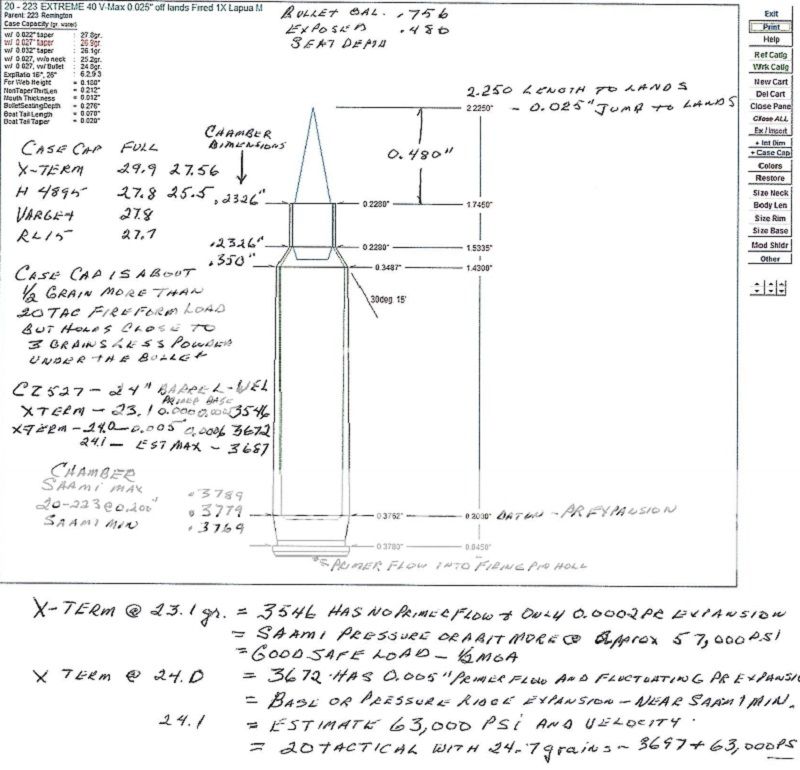 20 - 223 EXTREME 40 V-Max 0.025" off lands Fired 1X Lapua M
Parent: 223 Remington
Case Capacity (gr. water)
w/ 0.022" taper : 27.8gr.
w/ 0.027" taper : 26.9gr.
w/ 0.032" taper : 26.1gr.
w/ 0.027, w/o neck : 25.2gr.
w/ 0.027, w/Bullet : 24.8gr.
ExpRatio 16", 26" : 6.2,9.3
For Web Height = 0.180"
NonTaperThrtLen = 0.212"
Mouth Thickness = 0.012"
BulletSeatingDepth = 0.276"
Boat Tail Length = 0.070"
Boat Tail Taper = 0.020"
BULLET OAL. .756
EXPOSED .480
SEAT DEPTH
Exit
Print
Help
Ref Catlg
Wrk Catlg
New Cart
Del Cart
Close Pane
Close ALL
Ex / Import
+ Int Dim
+ Case Cap
Colors
Restore
Size Neck
Body Len
Size Rim
Size Base
Mod Shldr
Other
2.250 LENGTH TO LANDS
2.2250" - 0.025" JUMP TO LANDS
CHAMBER
DIMENSIONS
0.480"
CASE CAP FULL
X-TERM 29.9 27.56
H 4895 27.8 25.5
VARGET 27.8
RL15 27.7
.2326" 0.2280" 1.7450"
.2326" 0.2280" 1.5335"
.350" 0.3487" 1.4300"
30deg. 15'
CASE CAP IS ABOUT
1/2 GRAIN MORE THAN
20 TAC FIREFORM LOAD
BUT HOLDS CLOSE TO
3 GRAINS LESS POWDER
UNDER THE BULLET
CZ527 - 24" BARREL - VEL
PRIMER BASE
XTERM - 23.1 0.000 0.0002 3546
XTERM - 24.0 - 0.005 0.0006 3672
24.1 - EST MAX - 3687
CHAMBER
SAAMI MAX .3789
20-223 @ 0.200" .3779
SAAMI MIN .3769
0.3762" 0.2000" DATUM - PR EXPANSION
0.3780" 0.0450"
"= PRIMER FLOW INTO FIRING PIN HOLL
X-TERM @ 23.1 gr. = 3546 HAS NO PRIMER FLOW + ONLY 0.0002 PR EXPANSION
= SAAMI PRESSURE OR A BIT MORE @ Approx 57,000 PSI
= GOOD SAFE LOAD - 1/2 MOA
X TERM @ 24.0 = 3672 HAS 0.005" PRIMER FLOW AND FLUCTUATING PR EXPANSIO
= BASE OR PRESSURE RIDGE EXPANSION - NEAR SAAMI MIN.
24.1 = ESTIMATE 63,000 PSI AND VELOCITY.
= 20 TACTICAL WITH 24.7 grains - 3697 + 63,000 PS